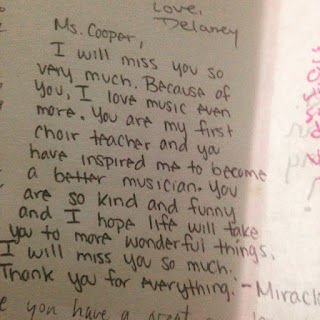 Love,
Delaney
Ms. Cooper,
I will miss you so
very much. Because of
you, I love music even
more. You are my first
choir teacher and you
have inspired me to become
a better musician. You
are so kind and funny
and I hope life will take
you to more wonderful things.
I will miss you so much.
Thank you for everything. - Miracl
you have a great